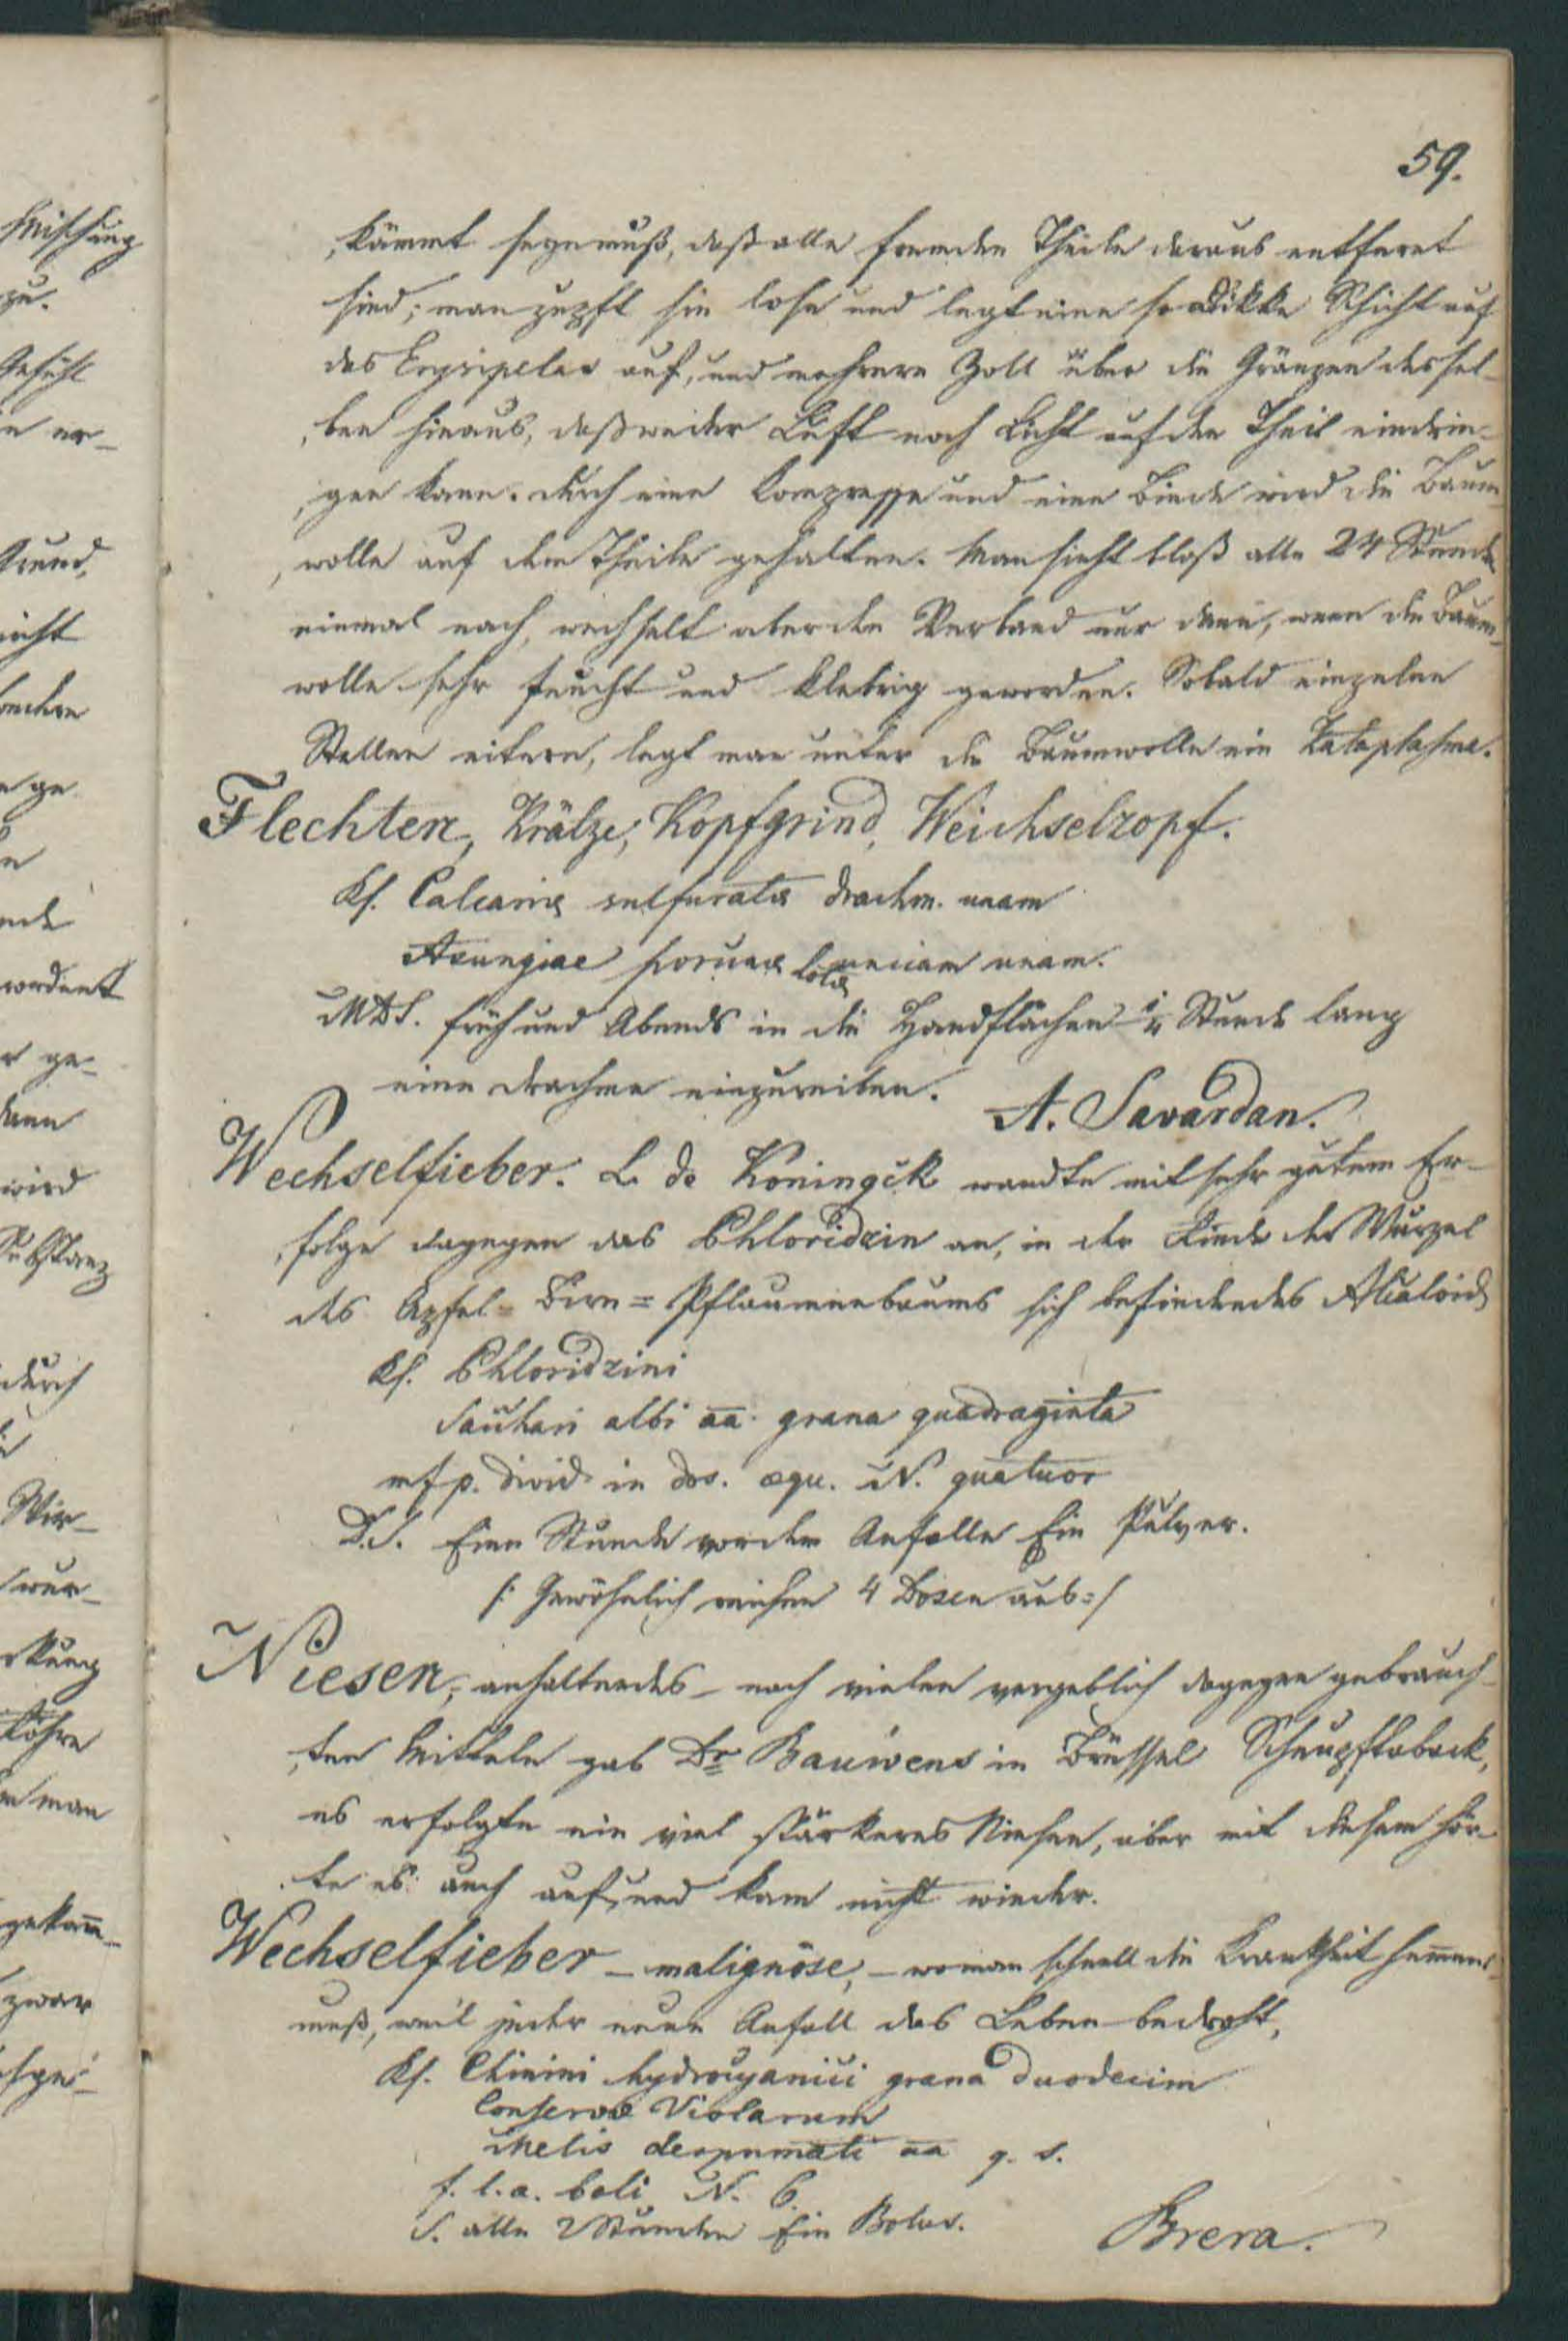 59.
kämmt seyn muß, daß alle fremden Theile daraus entfernt
sind; man zupft sie lose und legt eine so dikke Schicht auf
das Erysipelas auf, und mehrere Zoll über die Gränzen dessel-
ben hinaus, daß weder Luft noch Licht auf den Theil eindrin-
gen kann. Durch eine Kompresse und eine Binde wird die Baum-
wolle auf dem Theile gehalten. Man sieht bloß alle 24 Stunden
einmal nach, wechselt aber den Verband nur dann, wenn die Baum-
wolle sehr feucht und klebrig geworden. Sobald einzelne
Stellen eitern, legt man unter die Baumwolle ein Kataplasma.
Flechten, Krätze, Kopfgrind, Weichselzopf.
Rf. Calcariae sulfuratae drachm. unam
Axungiae porcinae lotae unciam unam.
MDS. früh und Abends in die Handflächen 1/4 Stunde lang
eine Drachme einzureiben.
A. Savardan.
Wechselfieber. L. de Koningck wandte mit sehr gutem Er-
folge dagegen das Phloridzin an, in der Rinde der Wurzel
des Apfel- Birn= Pflaumenbaums sich befindendes Alcaloid
Rf. Phloridzini
Sacchari albi aa. grana quadraginta
mfp. divid in dos. aequ. N. quatuor
D.S. Eine Stunde vor dem Anfalle Ein Pulver.
/: Gewöhnlich reichen 4 Dosen aus :/
Niesen, anhaltendes – nach vielen vergeblich dagegen gebrauch-
ten Mitteln gab Dr Bauwens in Brüssel Schnupftaback,
es erfolgte ein viel stärkeres Niesen, aber mit diesem hör-
te es auch auf, und kam nicht wieder.
Wechselfieber – malignöse, – wo man schnell die Krankheit hemmen
muß, weil jeder neue Anfall das Leben bedroht,
Rf. Chinini hydrocyanici grana duodecim
Conservae Violarum
Mellis despumati aa q. s.
f. l. a. boli N. 6.
S. alle 2 Stunden Ein Bolus.
Brera.